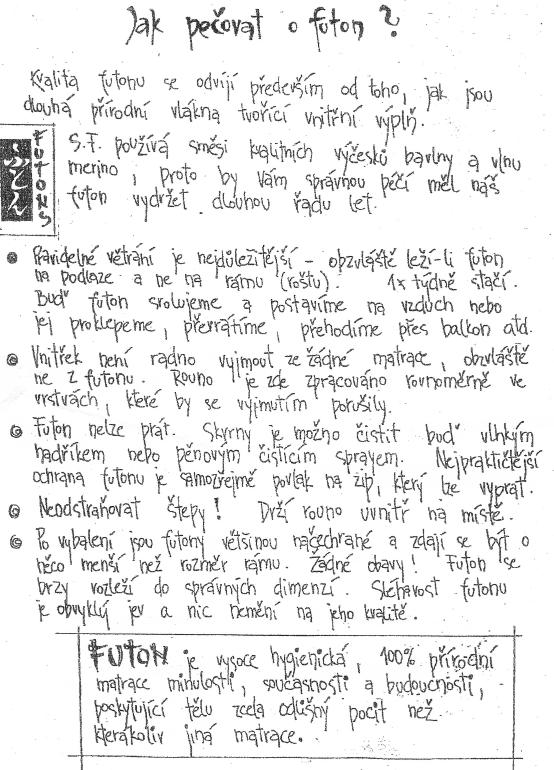 Jak pečovat o futon?
Kvalita futonu se odvíjí především od toho, jak jsou
dlouhá přírodní vlákna tvořící vnitřní výplň.
FUTONS
S.F. používá směsi kvalitních výčesků bavlny a vlnu
merino, proto by Vám správnou péčí měl náš
futon vydržet dlouhou řadu let.
Pravidelné větrání je nejdůležitější – obzvláště leží-li futon
na podlaze a ne na rámu (roštu). 1x týdně stačí.
Buď futon srolujeme a postavíme na vzduch nebo
jej proklepeme, převrátíme, přehodíme přes balkon atd.
Vnitřek není radno vyjmout ze žádné matrace, obzvláště
ne z futonu. Rouno je zde zpracováno rovnoměrně ve
vrstvách, které by se vyjmutím porušily.
Futon nelze prát. Skvrny je možno čistit buď vlhkým
hadříkem nebo pěnovým čistícím sprayem. Nejpraktičtější
ochrana futonu je samozřejmě povlak na zip, který lze vyprat.
Neodstraňovat štepy! Drží rouno uvnitř na místě.
Po vybalení jsou futony většinou načechrané a zdají se být o
něco menší než rozměr rámu. Žádné obavy! Futon se
brzy rozleží do správných dimenzí. Sléhavost futonu
je obvyklý jev a nic nemění na jeho kvalitě.
FUTON je vysoce hygienická, 100% přírodní
matrace minulosti, současnosti a budoucnosti,
poskytující tělu zcela odlišný pocit než
kterákoliv jiná matrace.